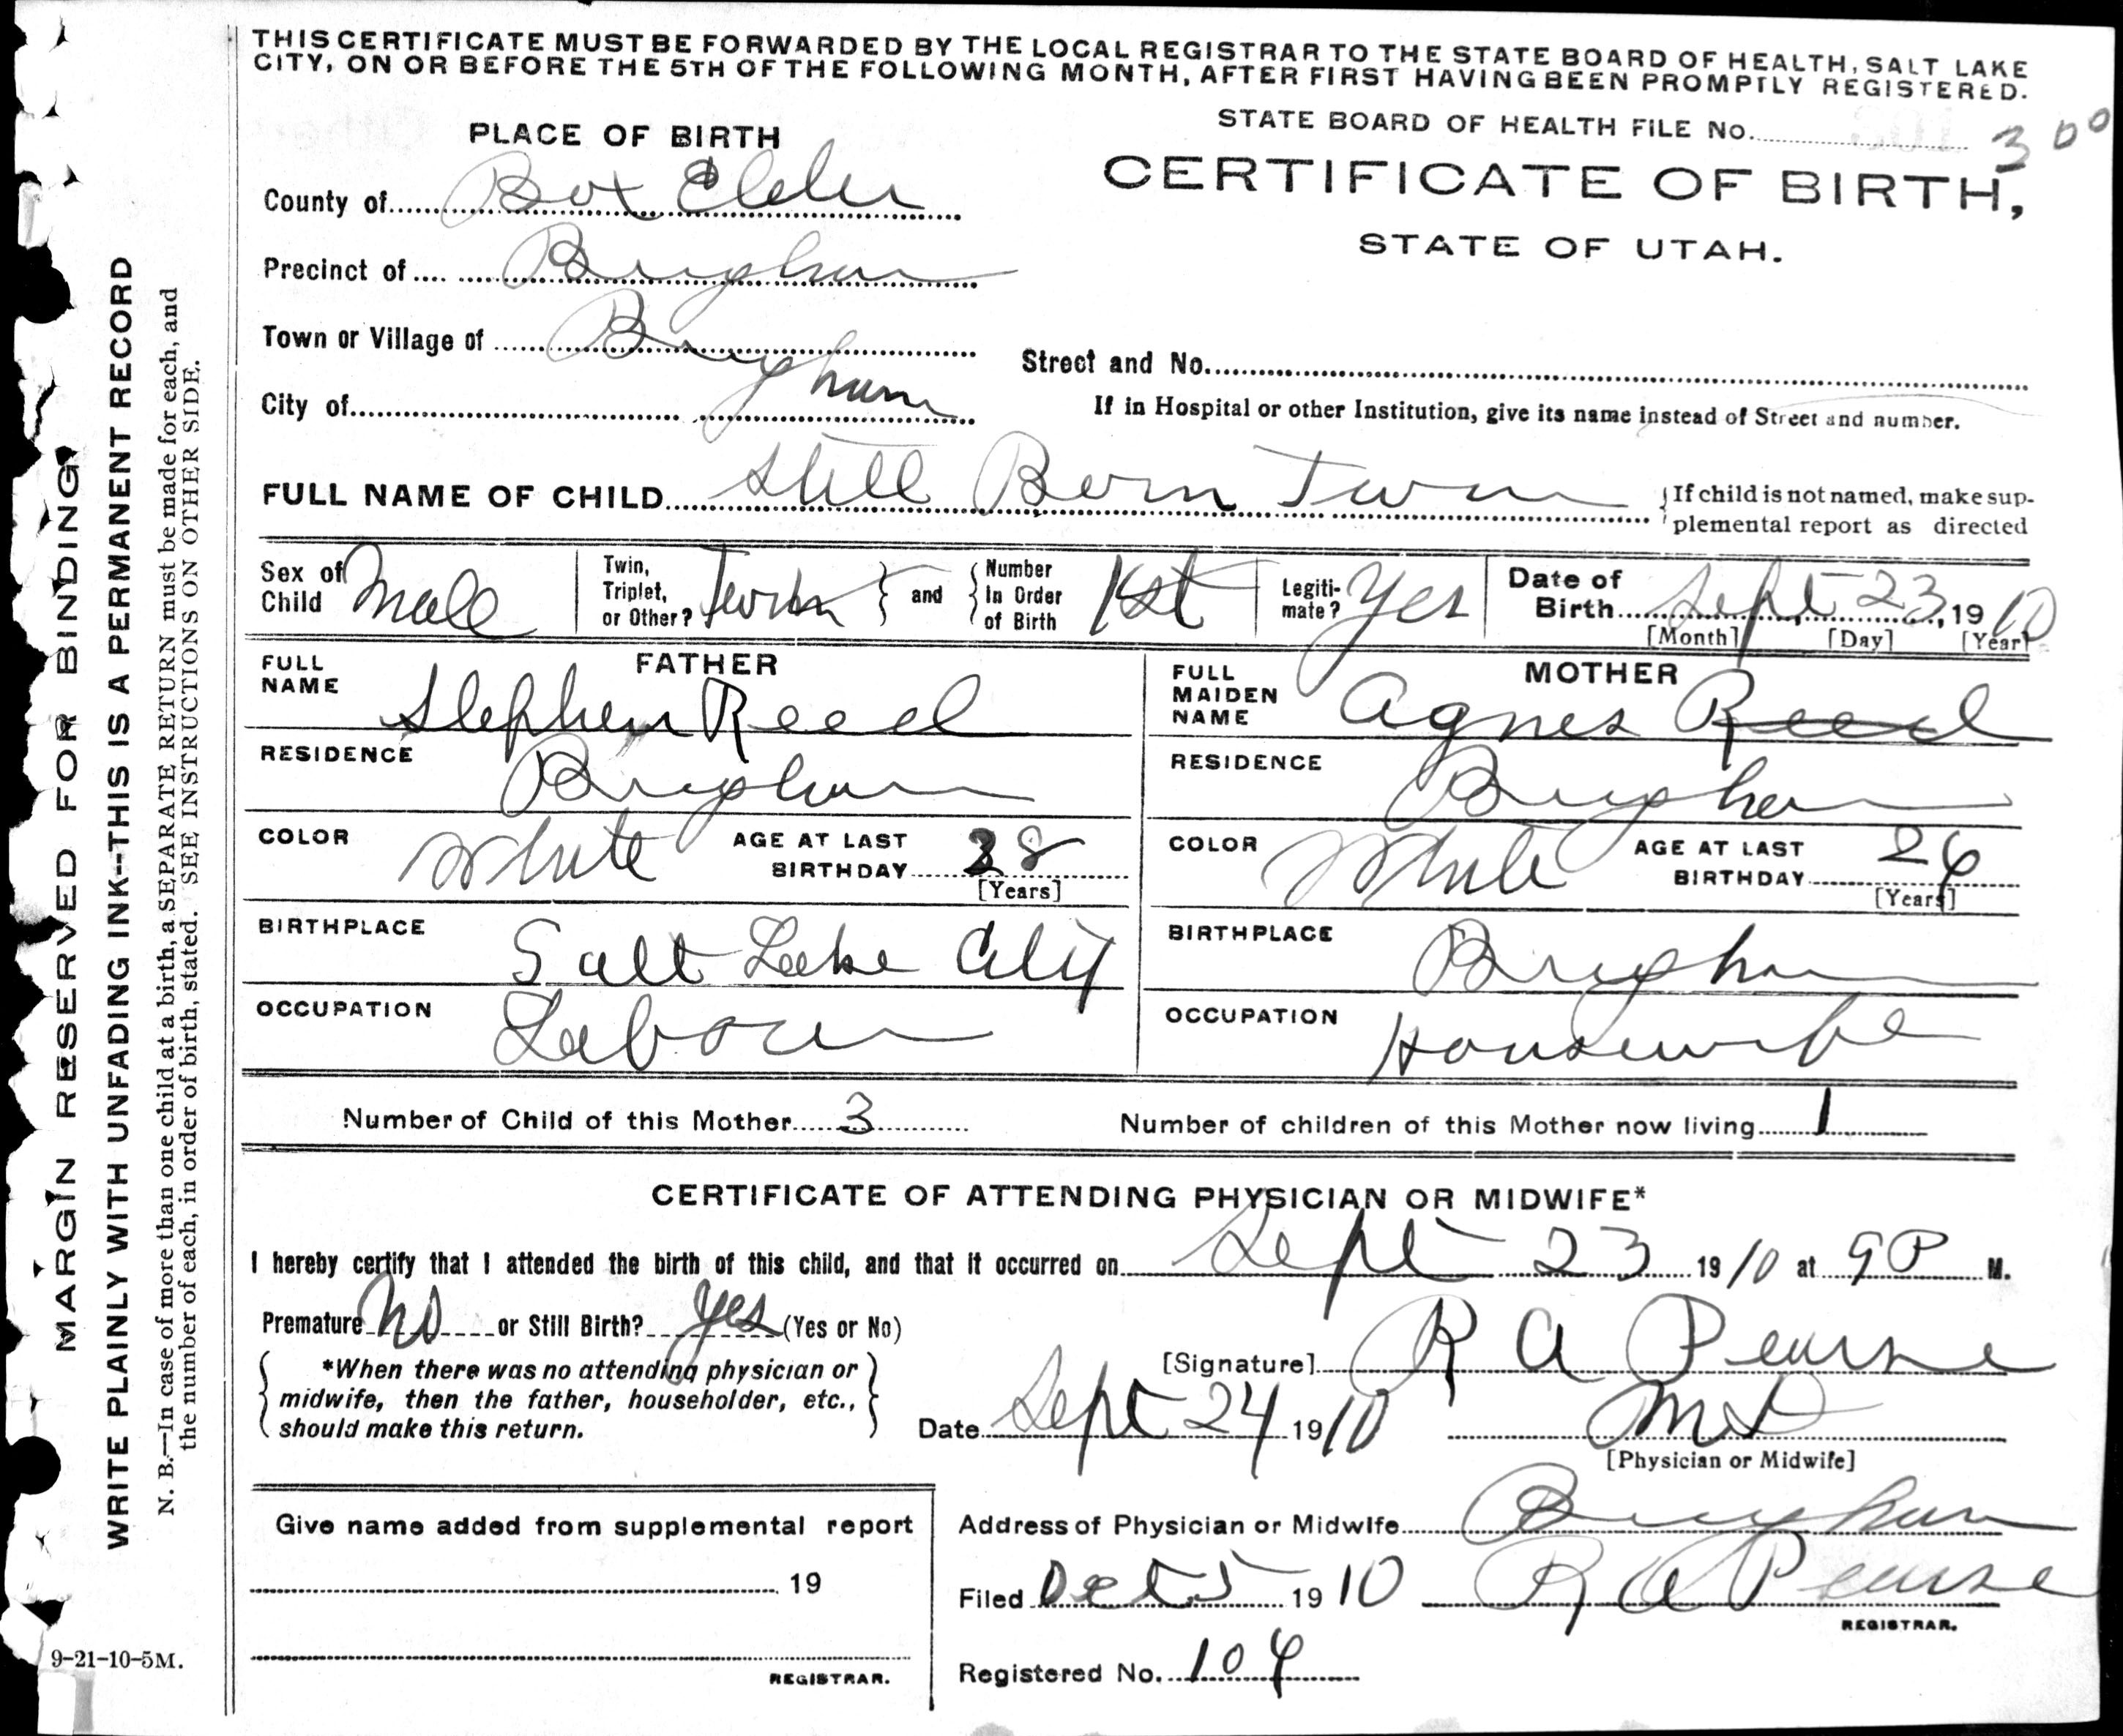 THIS CERTIFICATE MUST BE FORWARDED BY THE LOCAL REGISTRAR TO THE STATE BOARD OF HEALTH, SALT LAKE
CITY, ON OR BEFORE THE 5TH OF THE FOLLOWING MONTH, AFTER FIRST HAVING BEEN PROMPTLY REGISTERED.
STATE BOARD OF HEALTH FILE No. 300
PLACE OF BIRTH
CERTIFICATE OF BIRTH,
STATE OF UTAH.
County of Box Elder
Precinct of Brigham
Town or Village of Brigham
Street and No.
City of
If in Hospital or other Institution, give its name instead of Street and number.
FULL NAME OF CHILD Still Born Twin
If child is not named, make sup-
plemental report as directed
Sex of Child Male
Twin, Triplet, or Other? Twin
and
Number In Order of Birth 1st
Legiti-mate? Yes
Date of Birth Sept 23, 1910
[Month] [Day] [Year]
FATHER
FULL NAME Stephen Reed
RESIDENCE Brigham
COLOR White
AGE AT LAST BIRTHDAY 28
[Years]
BIRTHPLACE Salt Lake City
OCCUPATION Labour
MOTHER
FULL MAIDEN NAME Agnes Reed
RESIDENCE Brigham
COLOR White
AGE AT LAST BIRTHDAY 24
[Years]
BIRTHPLACE Brigham
OCCUPATION Housewife
Number of Child of this Mother 3
Number of children of this Mother now living 1
CERTIFICATE OF ATTENDING PHYSICIAN OR MIDWIFE*
I hereby certify that I attended the birth of this child, and that it occurred on Sept 23 1910 at 9 P M.
Premature No or Still Birth? Yes (Yes or No)
*When there was no attending physician or
midwife, then the father, householder, etc.,
should make this return.
[Signature] R A Pearse
Date Sept 24 1910
MD
[Physician or Midwife]
Give name added from supplemental report
19
REGISTRAR.
Address of Physician or Midwife Brigham
Filed Oct 5 1910 R A Pearse
REGISTRAR.
Registered No. 104
MARGIN RESERVED FOR BINDING
WRITE PLAINLY WITH UNFADING INK--THIS IS A PERMANENT RECORD
N. B.—In case of more than one child at a birth, a SEPARATE RETURN must be made for each, and
the number of each, in order of birth, stated. SEE INSTRUCTIONS ON OTHER SIDE.
9-21-10-5M.